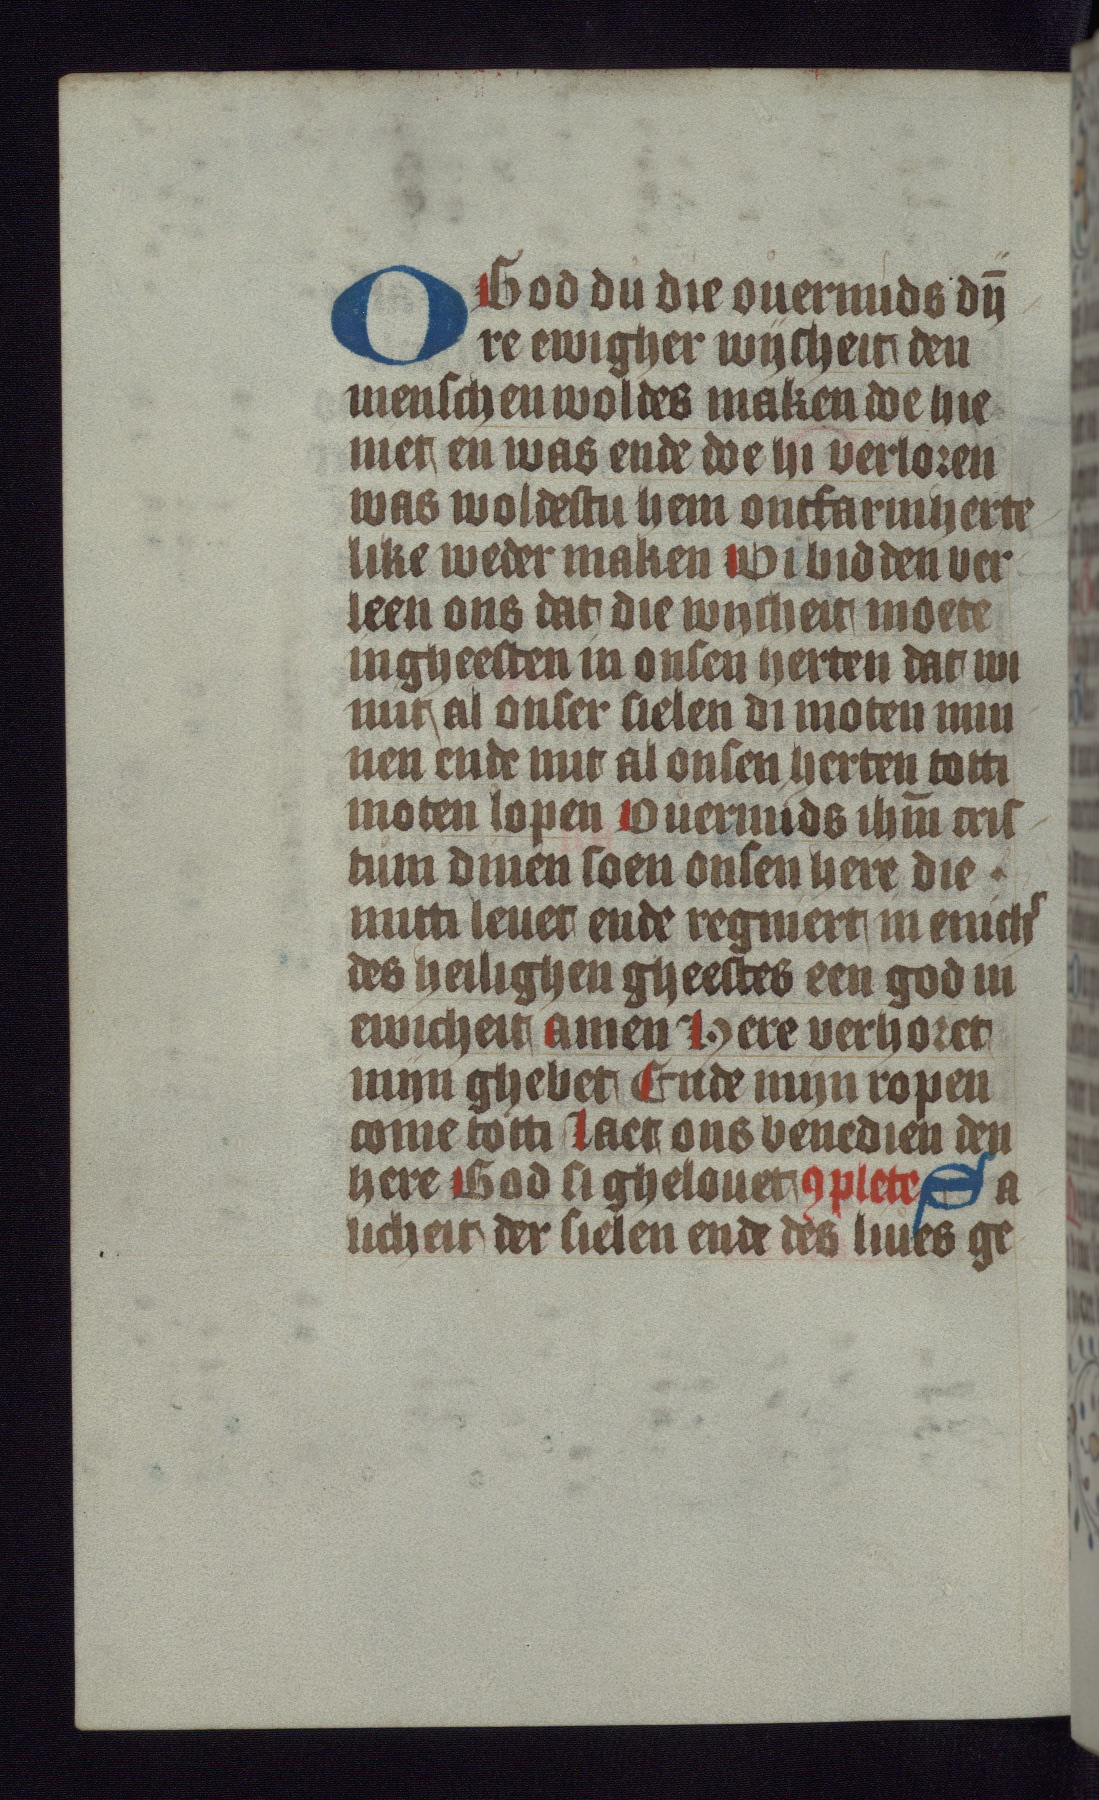 O God du die ouermids dỹ
re ewigher wijsheit den
menschen woldes maken doe hie
niet en was ende doe hi verloren
was woldestu hem ontfarmherte
like weder maken Wi bidden ver
leen ons dat die wijsheit moete
ingheesten in onsen herten dat wi
mit al onser sielen di moten min
nen ende mit al onsen herten totti
moten lopen Ouermids ihm̄ cris
tum dinen soen onsen here die
mitti leuet ende regniert in enich
des heilighen gheestes een god in
ewicheit amen Here verhoret
mijn ghebet Ende mijn ropen
come totti Laet ons benedien den
here God si ghelouet ꝯplete Sa
licheit der sielen ende des liues ge